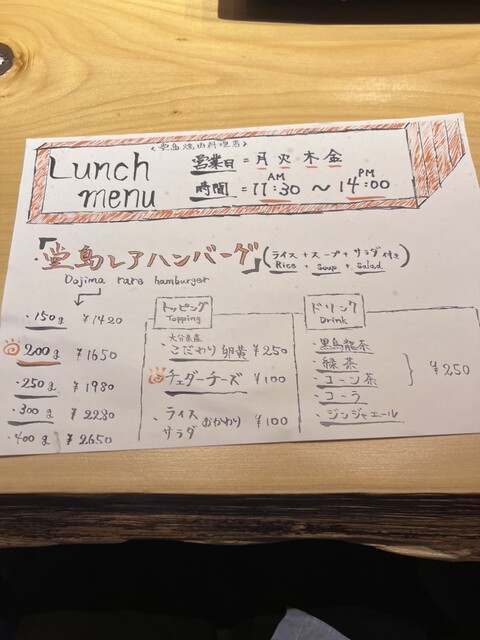 Lunch menu
営業日 = 月 火 木 金
時間 = 11:30 AM ～ 14:00 PM
「堂島レアハンバーグ」
Dojima rare hamburger
(ライス+スープ+サラダ付き)
Rice + Soup + Salad
・150g ¥1420
200g ¥1650
・250g ¥1980
・300g ¥2280
・400g ¥2650
トッピング
Topping
大分県産
・こだわり卵黄 ¥250
チェダーチーズ ¥100
・ライス
サラダ おかわり ¥100
ドリンク
Drink
・黒烏龍茶
・緑茶
・コーン茶
・コーラ
・ジンジャエール
¥250